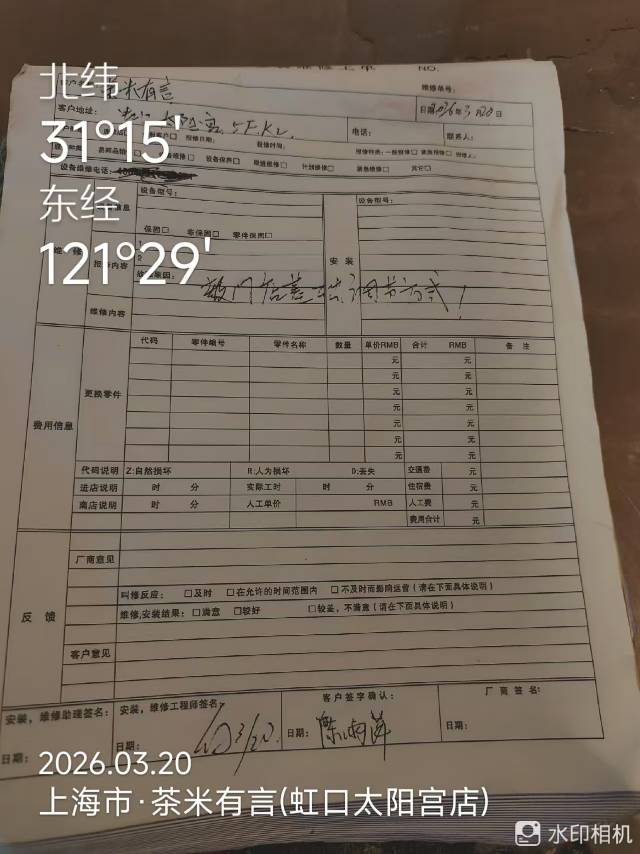 维修工单 NO.
茶米有言
维修单号：
客户地址：
5F.K2
日期2026年3月20日
电话：
联系人：
报修日期：
报修时间：
设备保养□
计划维修□
紧急维修□
其它□
设备维修电话：
设备型号：
设备型号：
保固□ 非保固□ 零件保固□
安装
报修内容
敲门后盖 调节方式！
维修内容
代码 零件编号 零件名称 数量 单价RMB 合计 RMB 备注
元 元
元 元
更换零件
元 元
元 元
费用信息
元 元
元 元
代码说明 Z:自然损坏 R:人为损坏 D:丢失 交通费 元
进店说明 时 分 实际工时 时 分 住宿费 元
离店说明 时 分 人工单价 RMB 人工费 元
费用合计 元
厂商意见
叫修反应： □及时 □在允许的时间范围内 □不及时而影响运营（请在下面具体说明）
反馈
维修,安装结果：□满意 □较好 □较差，不满意（请在下面具体说明）
客户意见
安装，维修助理签名： 安装，维修工程师签名： 客户签字确认： 厂商签名：
日期： 日期： 3/20 日期： 日期：
北纬
31°15'
东经
121°29'
2026.03.20
上海市·茶米有言(虹口太阳宫店)
水印相机